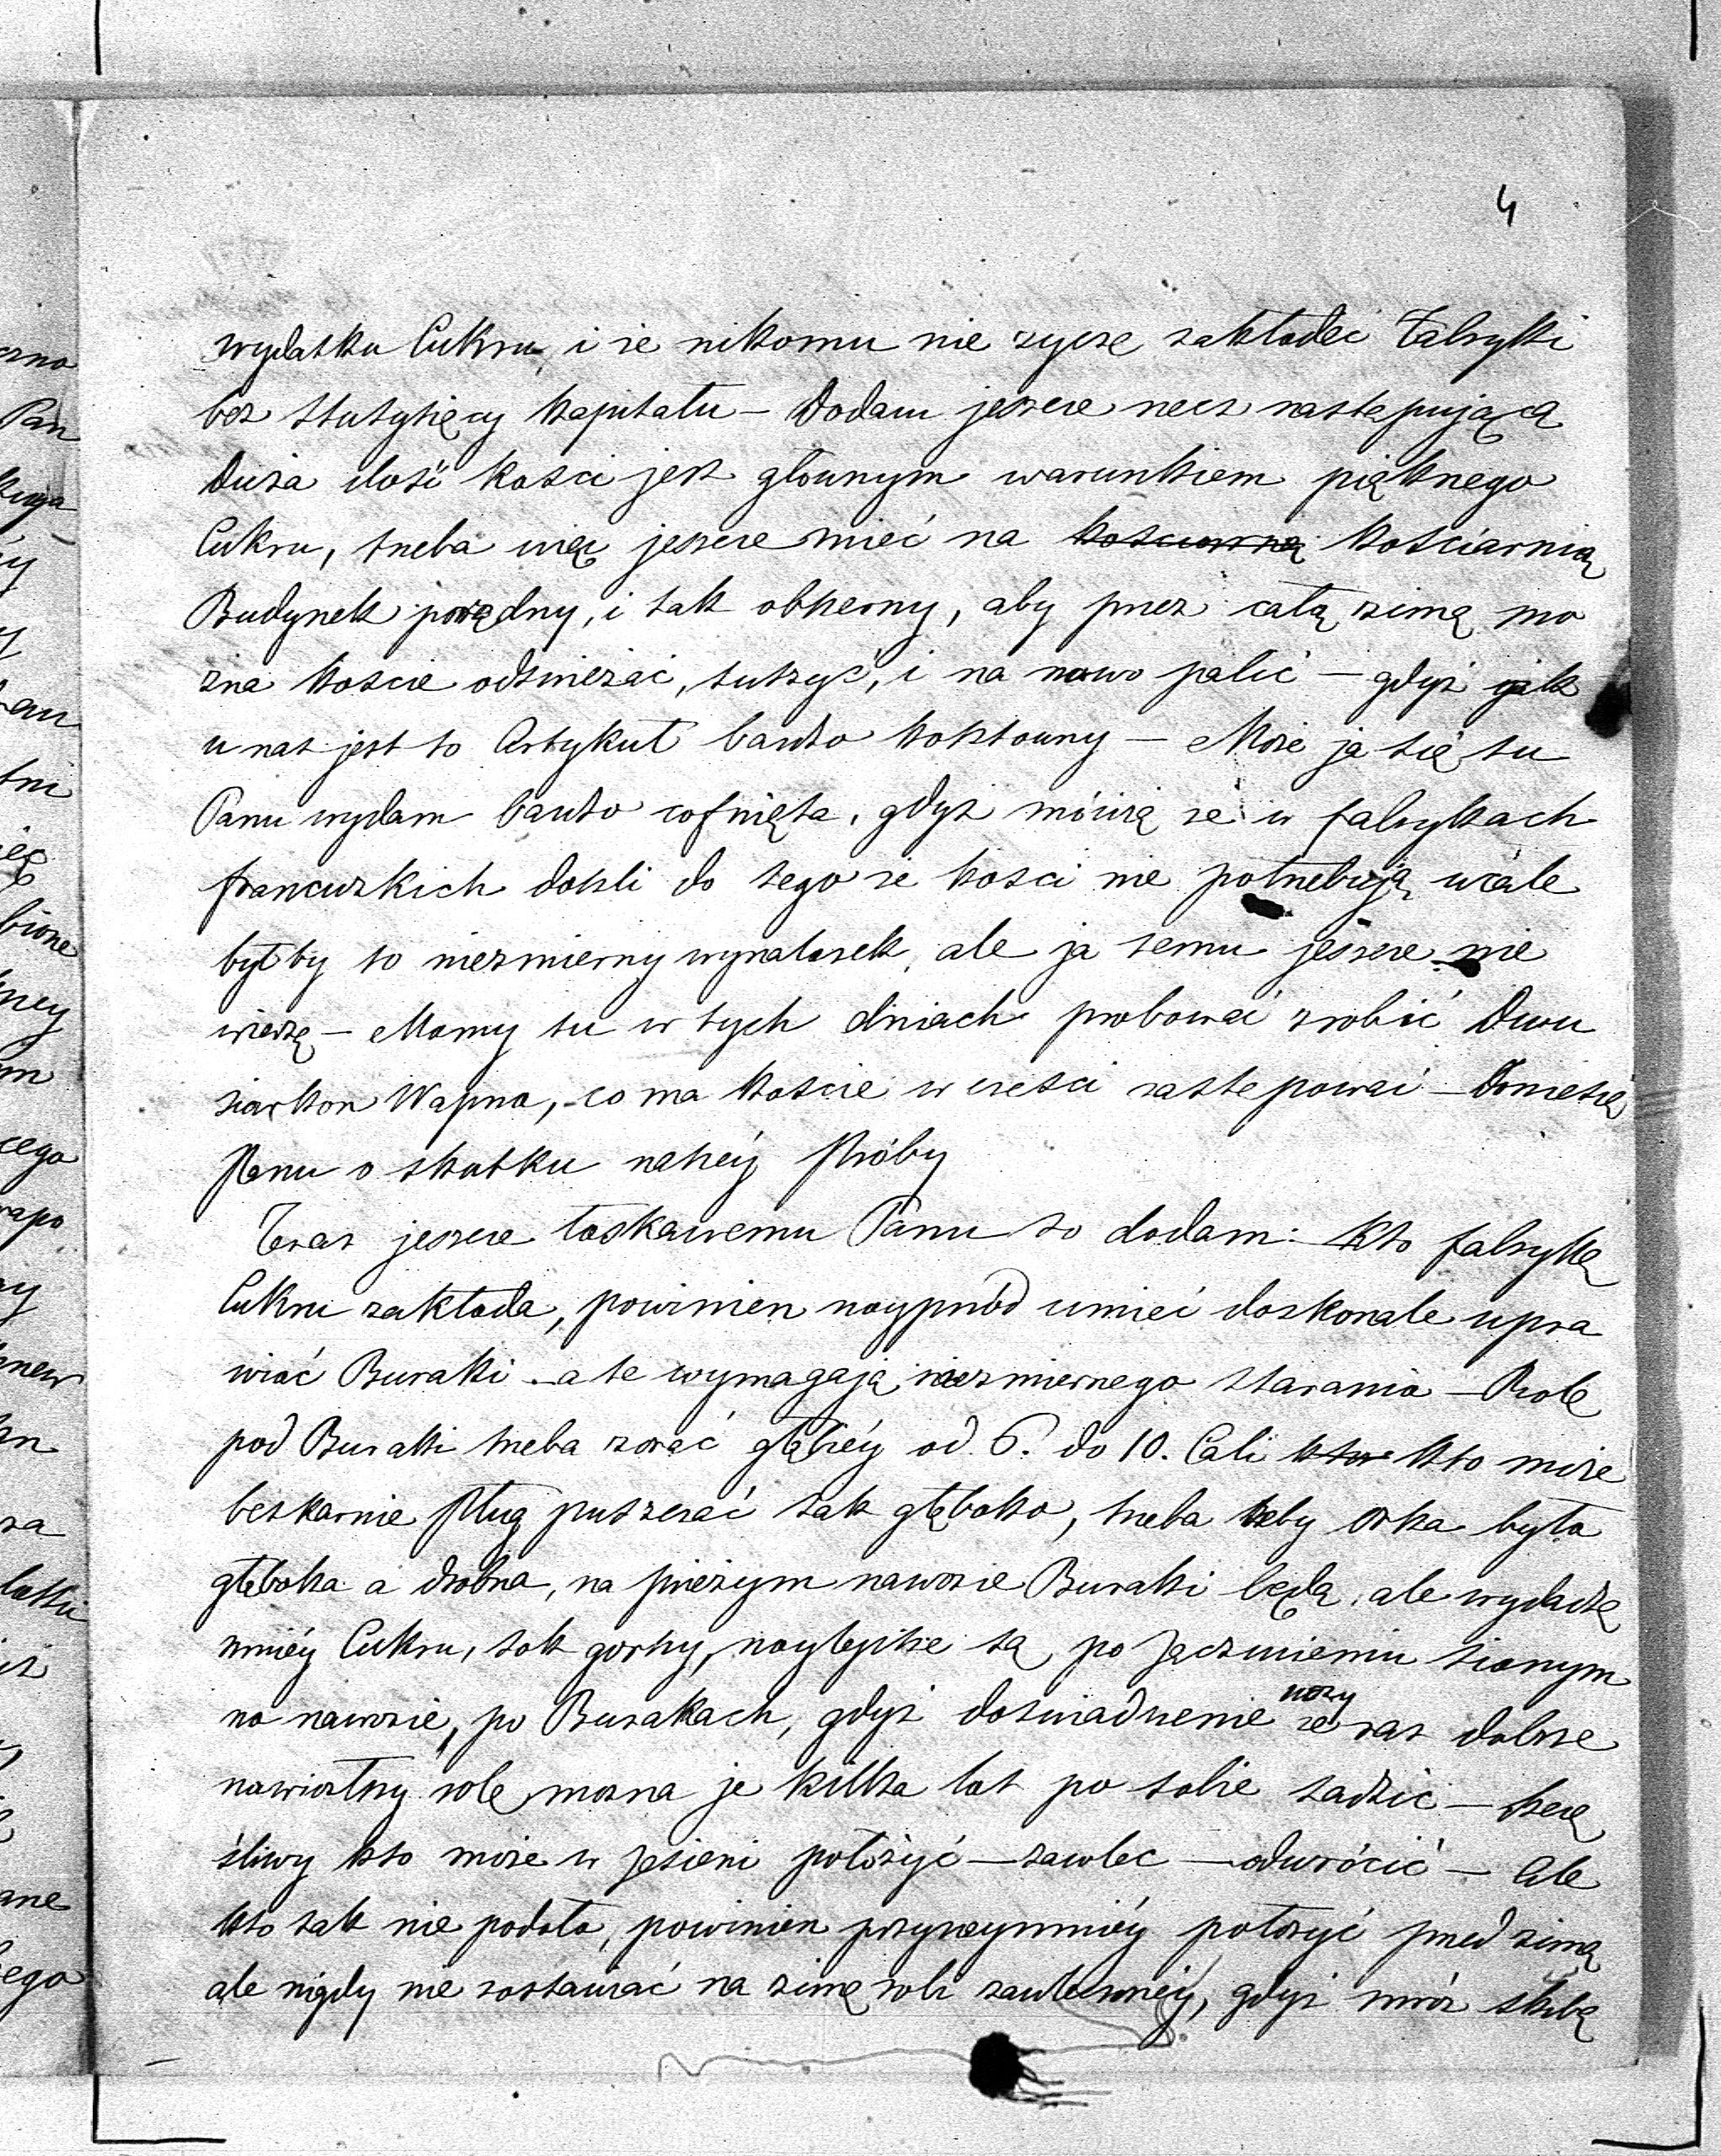 4
wydatku Cukru, i że nikomu nie życzę zakładać Fabryki
bez stutysięcy kapitału – Dodam jeszcze rzecz następującą
duża ilość kości jest głównym warunkiem pięknego
Cukru, trzeba więc jeszcze mieć na kościarnią
Budynek porządny, i tak obszerny, aby przez całą zimą mo
żna koście odświeżać, suszyć, i na nowo palić – gdyż jak
u nas jest to Artykuł bardzo kosztowny – Może ja się tu
Panu wydam bardzo cofnięta, gdyż mówią że w fabrykach
francuzkich doszli do tego że kości nie potrzebują wcale
byłby to niezmierny wynalazek, ale ja temu jeszcze nie
wierzą – Mamy tu w tych dniach probować zrobić Dwu
siarkon Wapna, co ma koście w części zastępować – Doniesię
Panu o skutku naszéy Próby
Teraz jeszcze łaskawemu Panu to dodam: Kto fabrykę
Cukru zakłada, powinien nayprzód umieć doskonale upra
wiać Buraki – a te wymagają niezmiernego starania – Rolę
pod Buraki trzeba zorać głębiéy od 6. do 10. Cali Kto może
bezkarnie Pług puszczać tak głęboko, trzeba żeby Orka była
głęboka a drobna, na świeżym nawozie Buraki będą, ale wydadzę
mniéy Cukru, sok gorszy, naylepsze są po Jęczmieniu sianym
na nawozie, po Burakach, gdyż doświadczenie uczy że raz dobrze
nawiozłszy rolę można je kilka lat po sobie sadzić – szczę
śliwy kto może w jesieni położyć – zawlec – odwrócić – Ale
kto tak nie podoła, powinien przynaymniéy położyć przed zimą
ale nigdy nie zostawiać na zimę roli zawleczonéy, gdyż mróz skibę